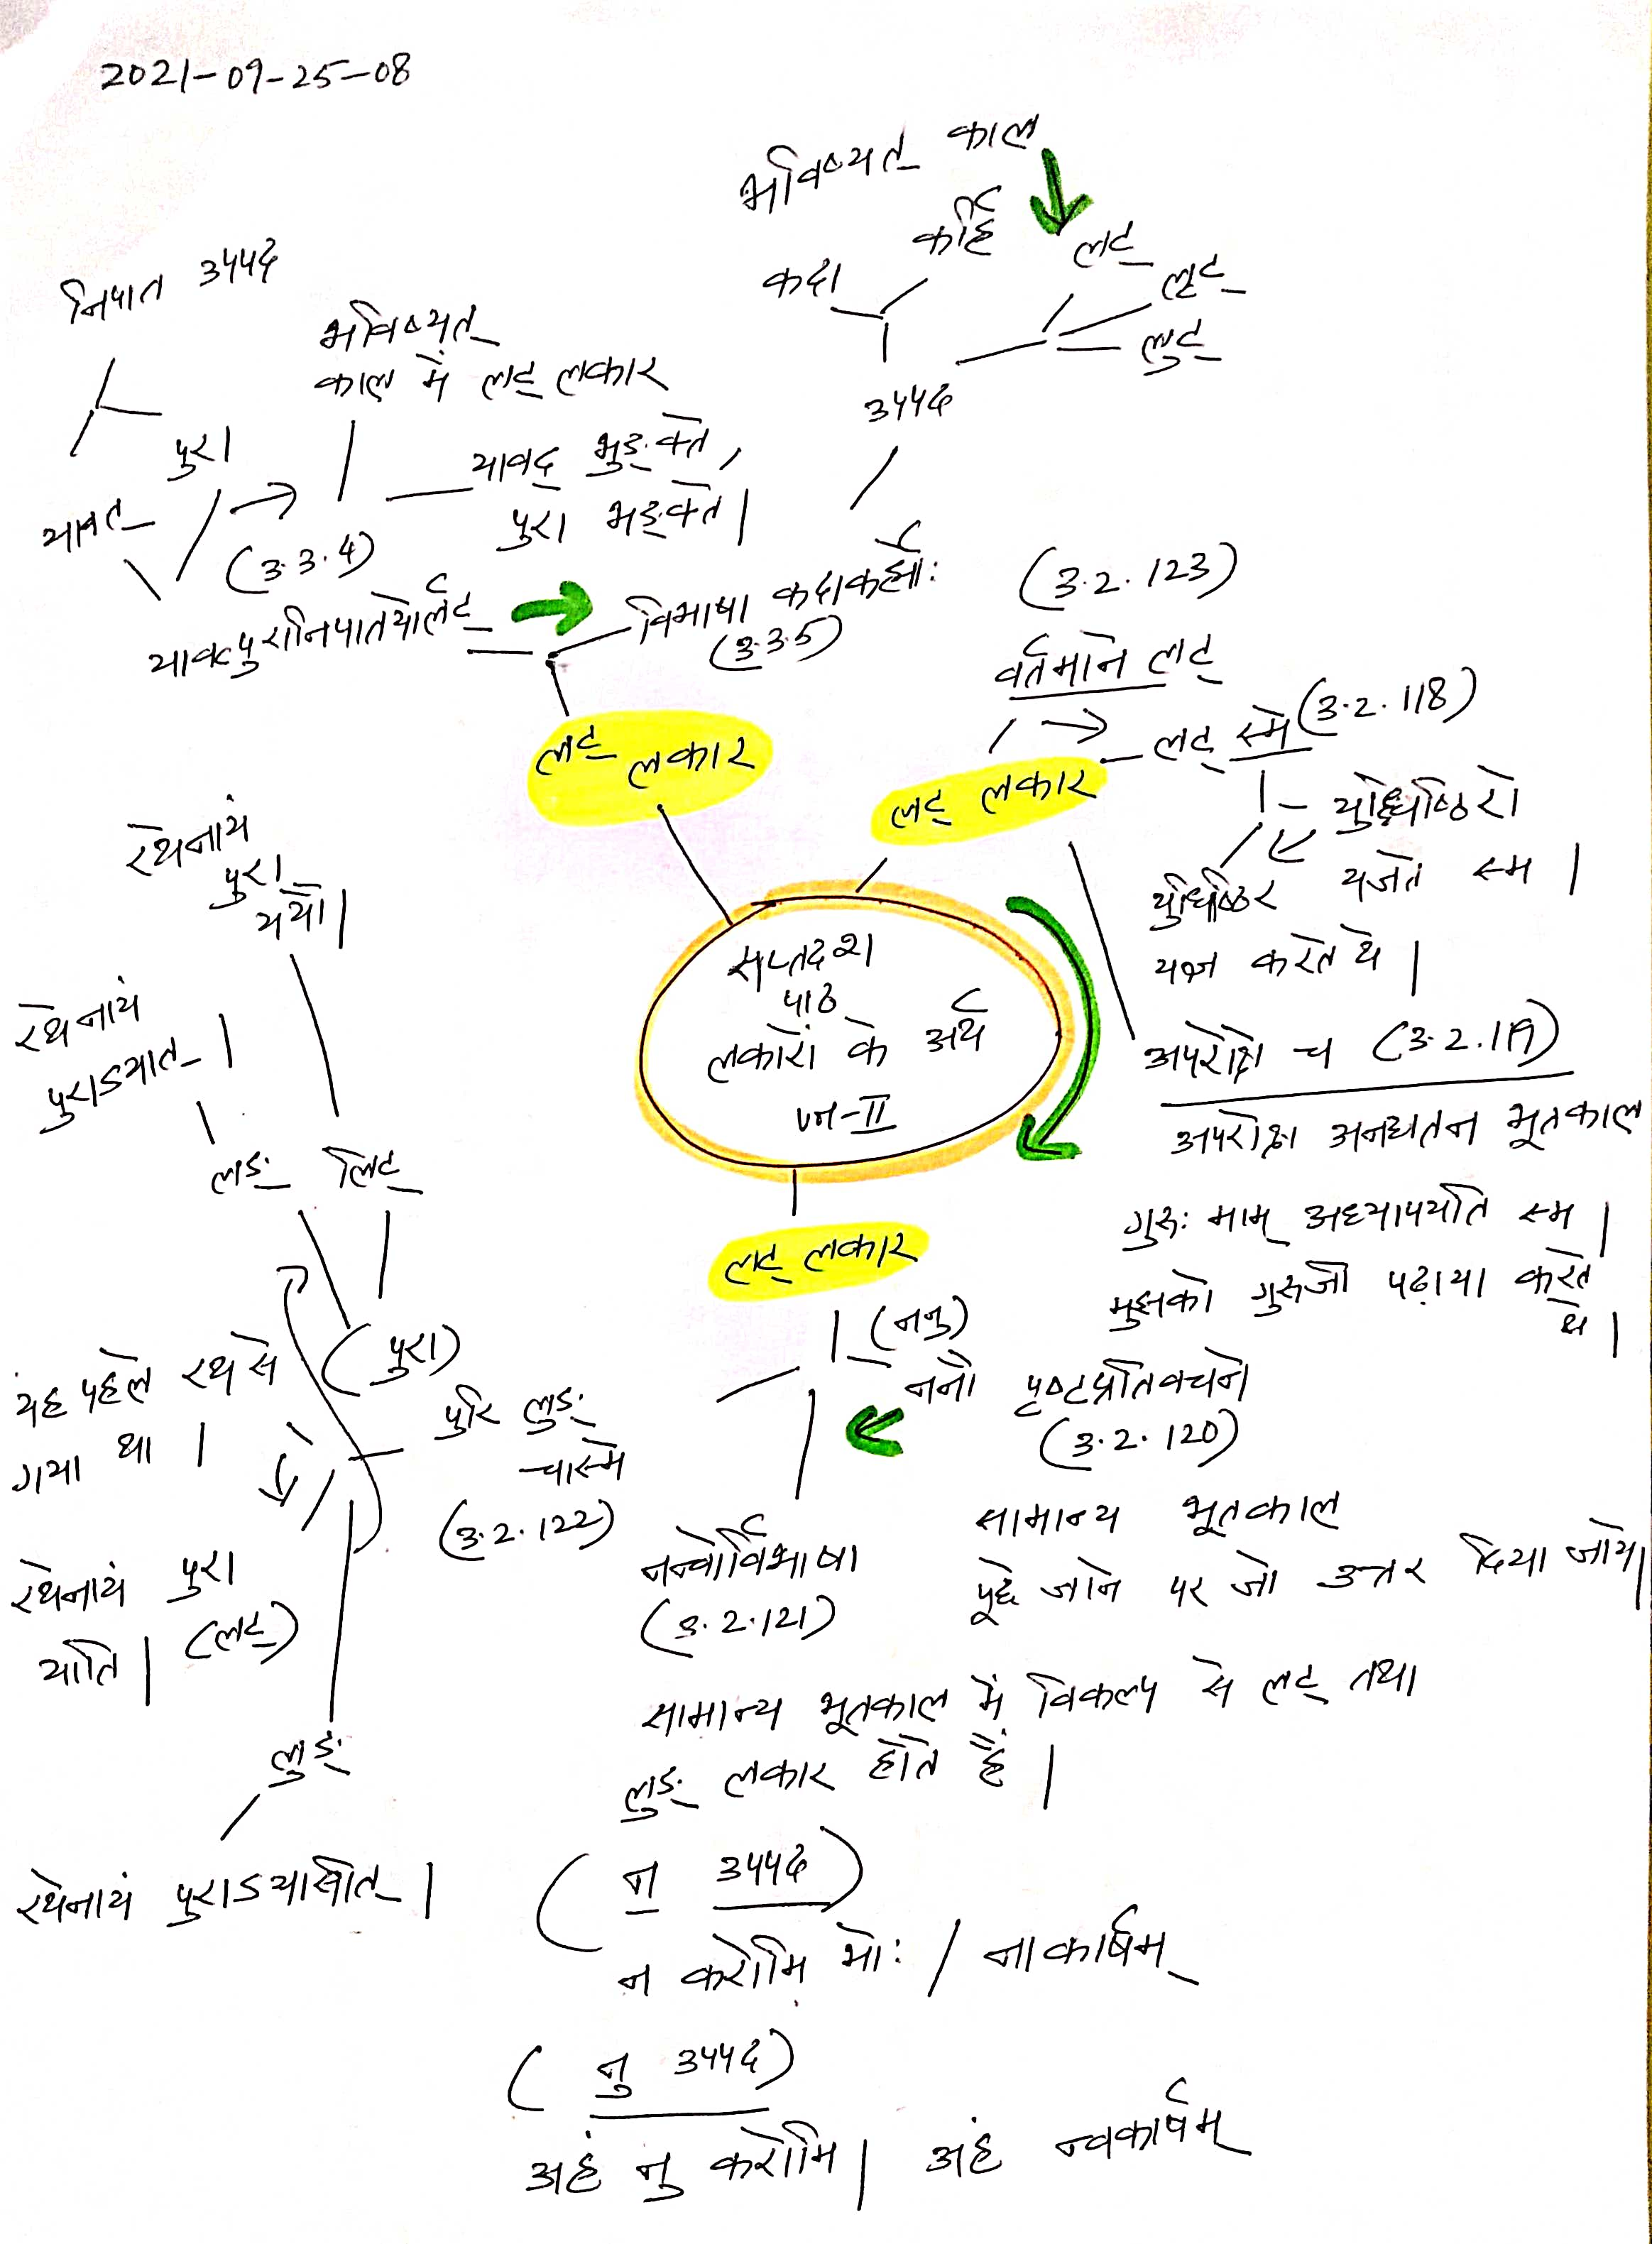 2021-09-25-08
भविष्यत् काल
कदा
कर्हि
लट्
लृट्
लुट्
उपपद
निपात उपपद
पुरा
यावत्
भविष्यत्
काल में लट् लकार
यावद् भुङ्क्ते,
पुरा भुङ्क्ते।
(3.3.4)
यावत्पुरानिपातयोर्लट्
विभाषा कदाकर्ह्योः
(3.3.5)
लट् लकार
(3.2.123)
वर्तमाने लट्
लट् स्मे (3.2.118)
लट् लकार
युधिष्ठिरो
यजते स्म।
युधिष्ठिर
यज्ञ करते थे।
अपरोक्षे च (3.2.119)
अपरोक्ष अनद्यतन भूतकाल
गुरुः माम् अध्यापयति स्म।
मुझको गुरुजी पढ़ाया करते
थे।
सप्तदश
पाठ
लकारों के अर्थ
पन-II
लट् लकार
(ननु)
ननौ पृष्टप्रतिवचने
(3.2.120)
सामान्य भूतकाल
पूछे जाने पर जो उत्तर दिया जाये।
नन्वोर्विभाषा
(3.2.121)
सामान्य भूतकाल में विकल्प से लट् तथा
लुङ् लकार होते हैं।
(न उपपद)
न करोमि भोः / नाकार्षम्
(नु उपपद)
अहं नु करोमि। अहं न्वकार्षम्
रथेनायं
पुरा
ययौ।
रथेनायं
पुराऽयात्।
लङ् लिट्
(पुरा)
यह पहले रथ से
गया था।
पुरि लुङ्
चास्मे
(3.2.122)
रथेनायं पुरा
याति। (लट्)
लुङ्
रथेनायं पुराऽयासीत्।